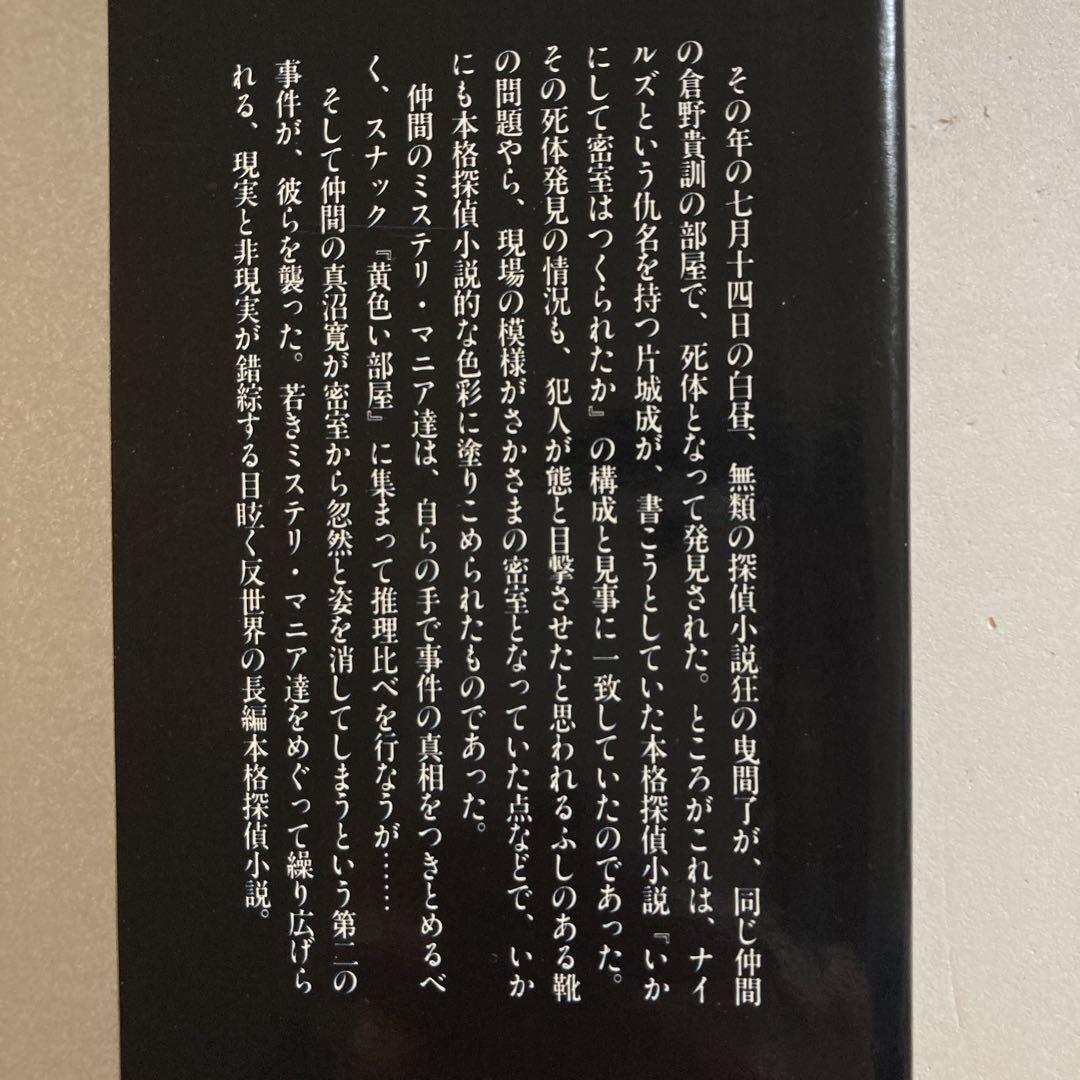 その年の七月十四日の白昼、無類の探偵小説狂の曳間了が、同じ仲間
の倉野貴訓の部屋で、死体となって発見された。ところがこれは、ナイ
ルズという仇名を持つ片城成が、書こうとしていた本格探偵小説『いか
にして密室はつくられたか』の構成と見事に一致していたのであった。
その死体発見の情況も、犯人が態と目撃させたと思われるふしのある靴
の問題やら、現場の模様がさかさまの密室となっていた点などで、いか
にも本格探偵小説的な色彩に塗りこめられたものであった。
仲間のミステリ・マニア達は、自らの手で事件の真相をつきとめるべ
く、スナック『黄色い部屋』に集まって推理比べを行なうが……
そして仲間の真沼寛が密室から忽然と姿を消してしまうという第二の
事件が、彼らを襲った。若きミステリ・マニア達をめぐって繰り広げら
れる、現実と非現実が錯綜する目眩く反世界の長編本格探偵小説。